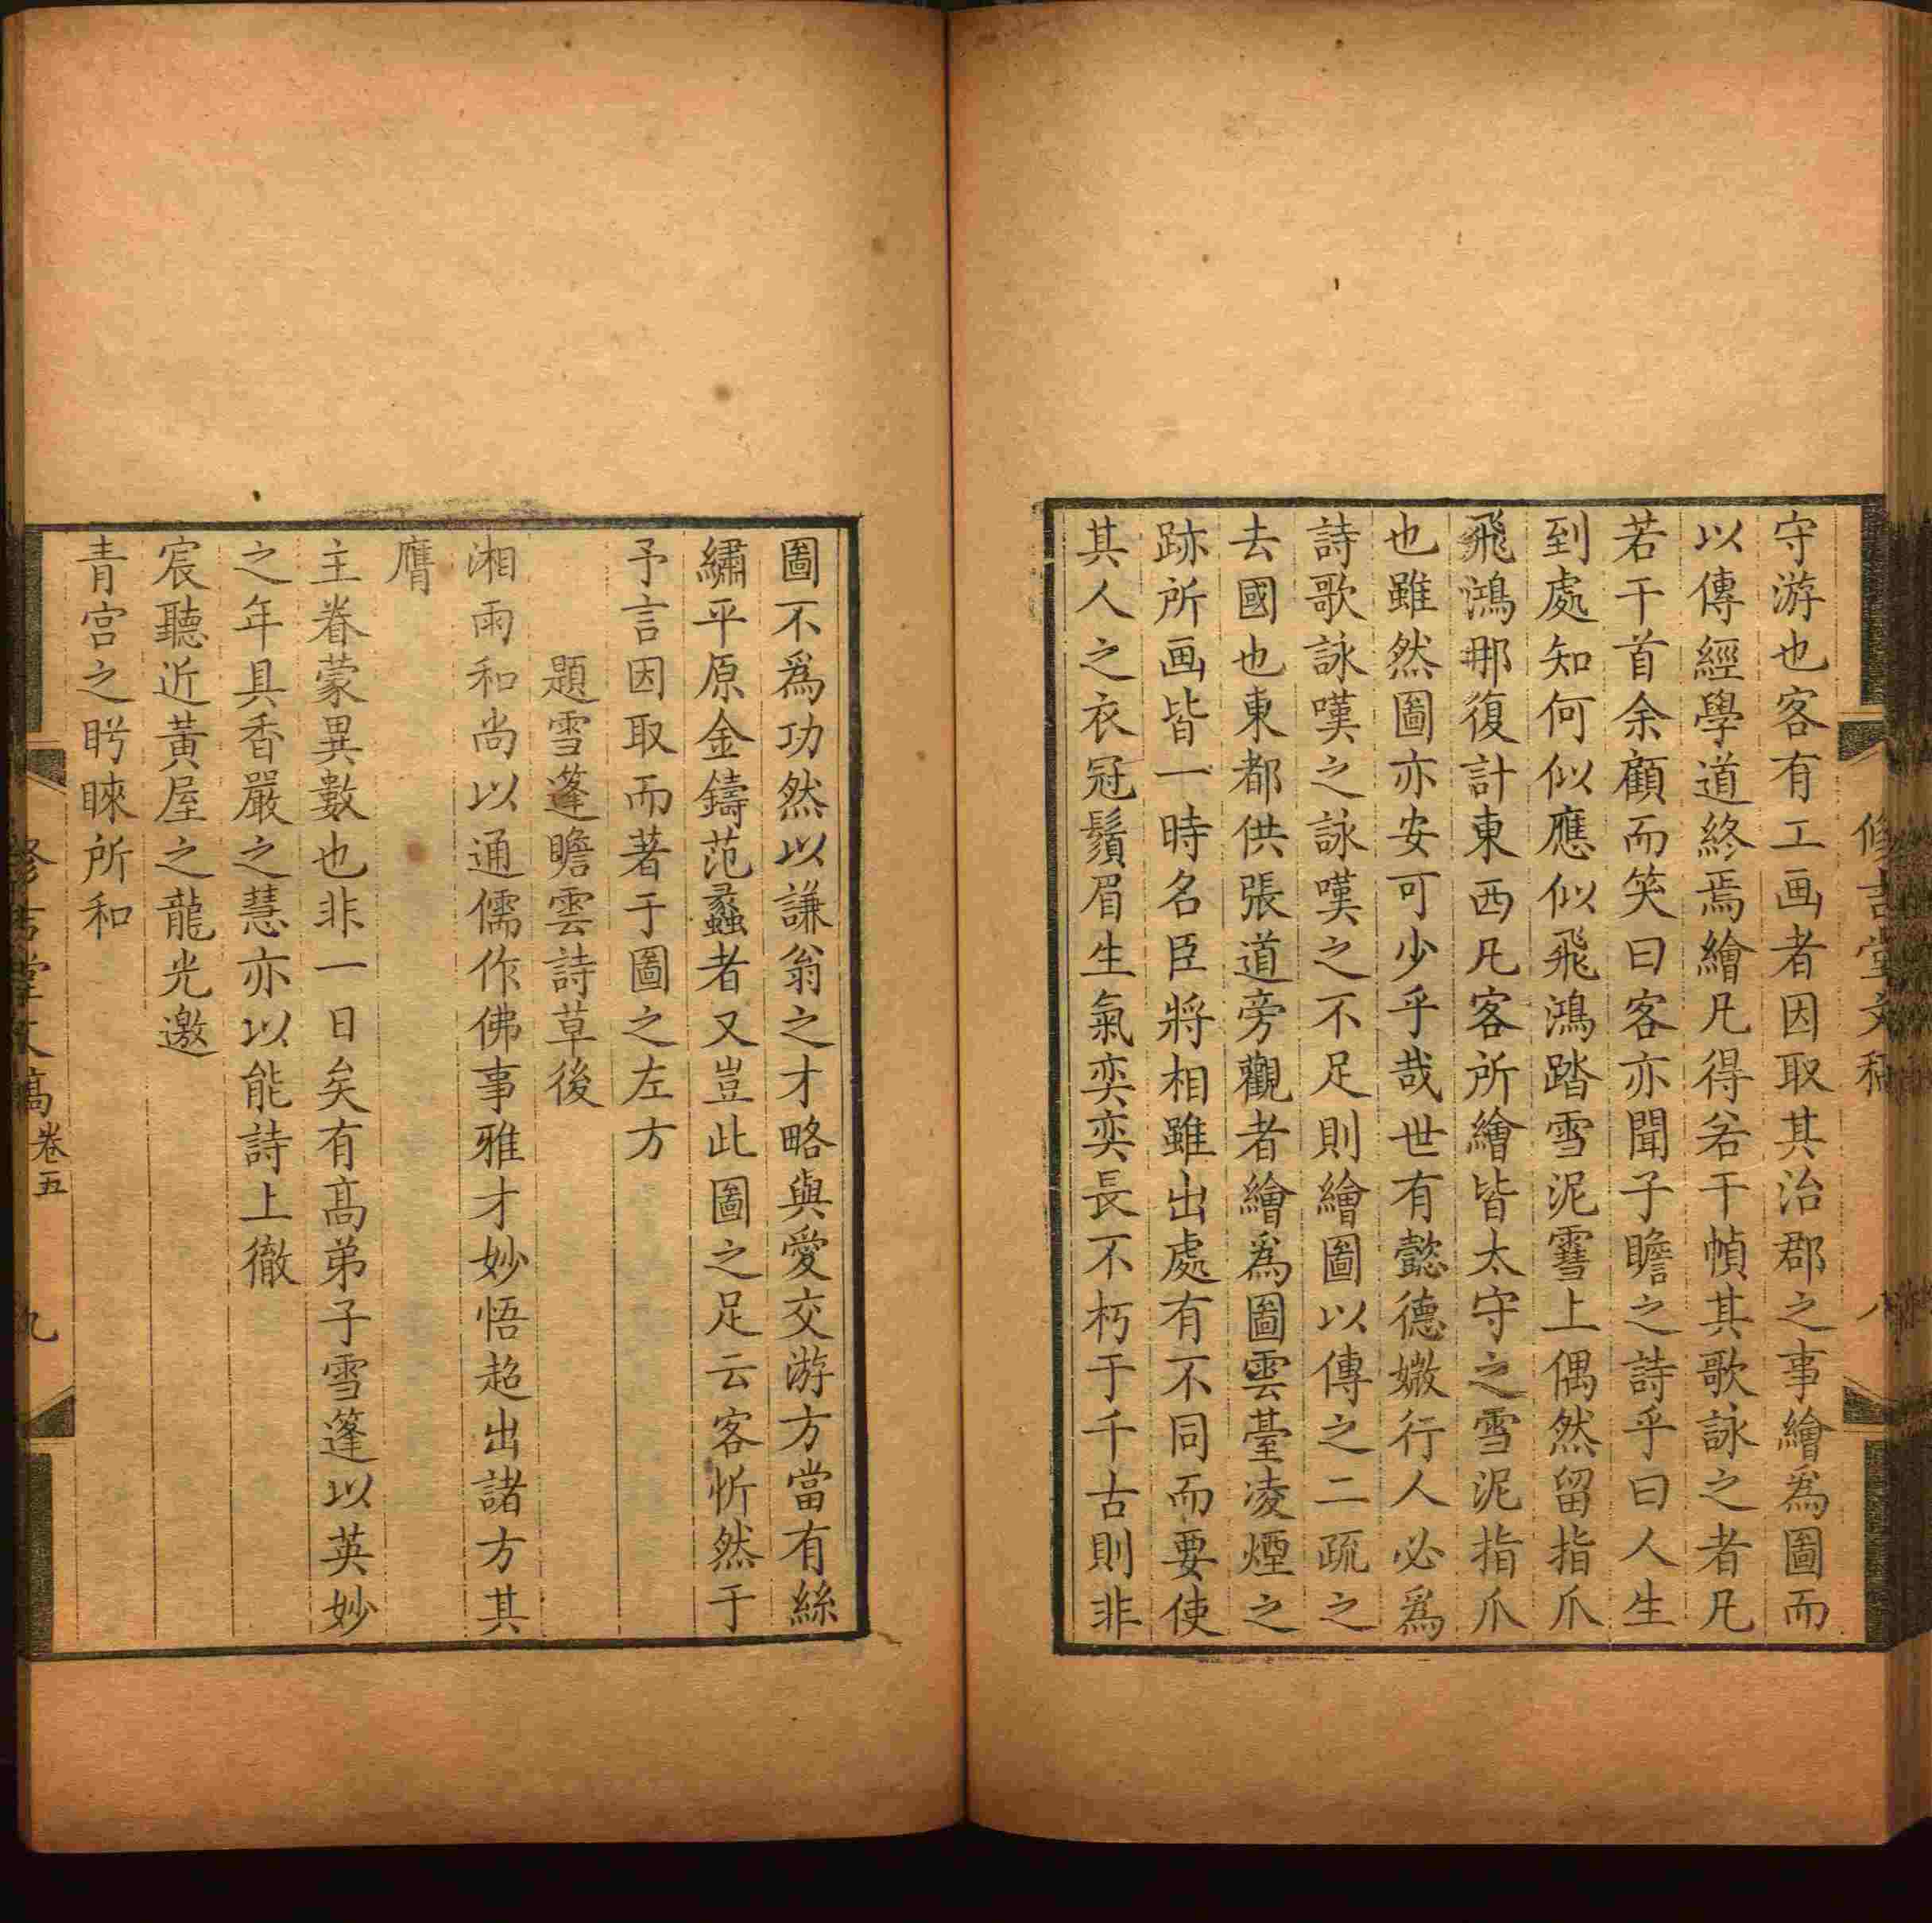 修吉堂文稿
八
守游也客有工画者因取其治郡之事繪為圖而
以傳經學道終焉繪凡得若干幀其歌詠之者凡
若干首余顧而笑曰客亦聞子瞻之詩乎曰人生
到處知何似應似飛鴻踏雪泥雪上偶然留指爪
飛鴻那復計東西凡客所繪皆太守之雪泥指爪
也雖然圖亦安可少乎哉世有懿德媺行人必爲
詩歌詠嘆之詠嘆之不足則繪圖以傳之二疏之
去國也東都供張道旁觀者繪爲圖雲臺凌煙之
跡所画皆一時名臣將相雖出處有不同而要使
其人之衣冠鬚眉生氣奕奕長不朽于千古則非
圖不爲功然以謙翁之才略與愛交游方當有絲
繡平原金鑄范蠡者又豈此圖之足云客忻然于
予言因取而著于圖之左方
題雪篷瞻雲詩草後
湘雨和尚以通儒作佛事雅才妙悟超出諸方其
膺
主眷蒙異數也非一日矣有高弟子雪篷以英妙
之年具香嚴之慧亦以能詩上徹
宸聽近黃屋之龍光邀
青宮之眄睞所和
修吉堂文稿 卷五
九